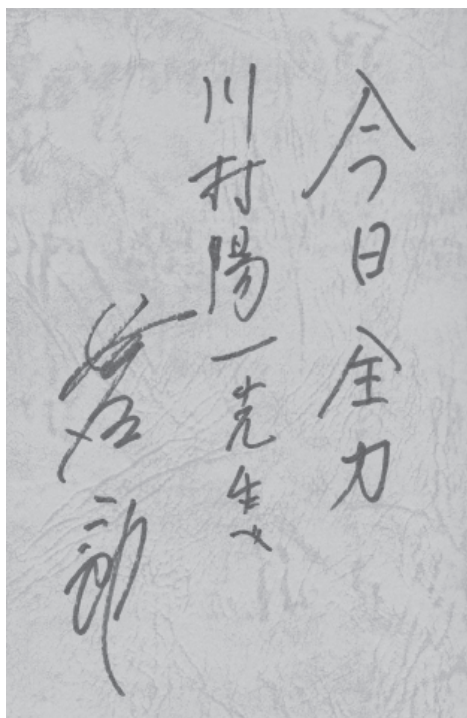 今日全力
川村陽一先生へ